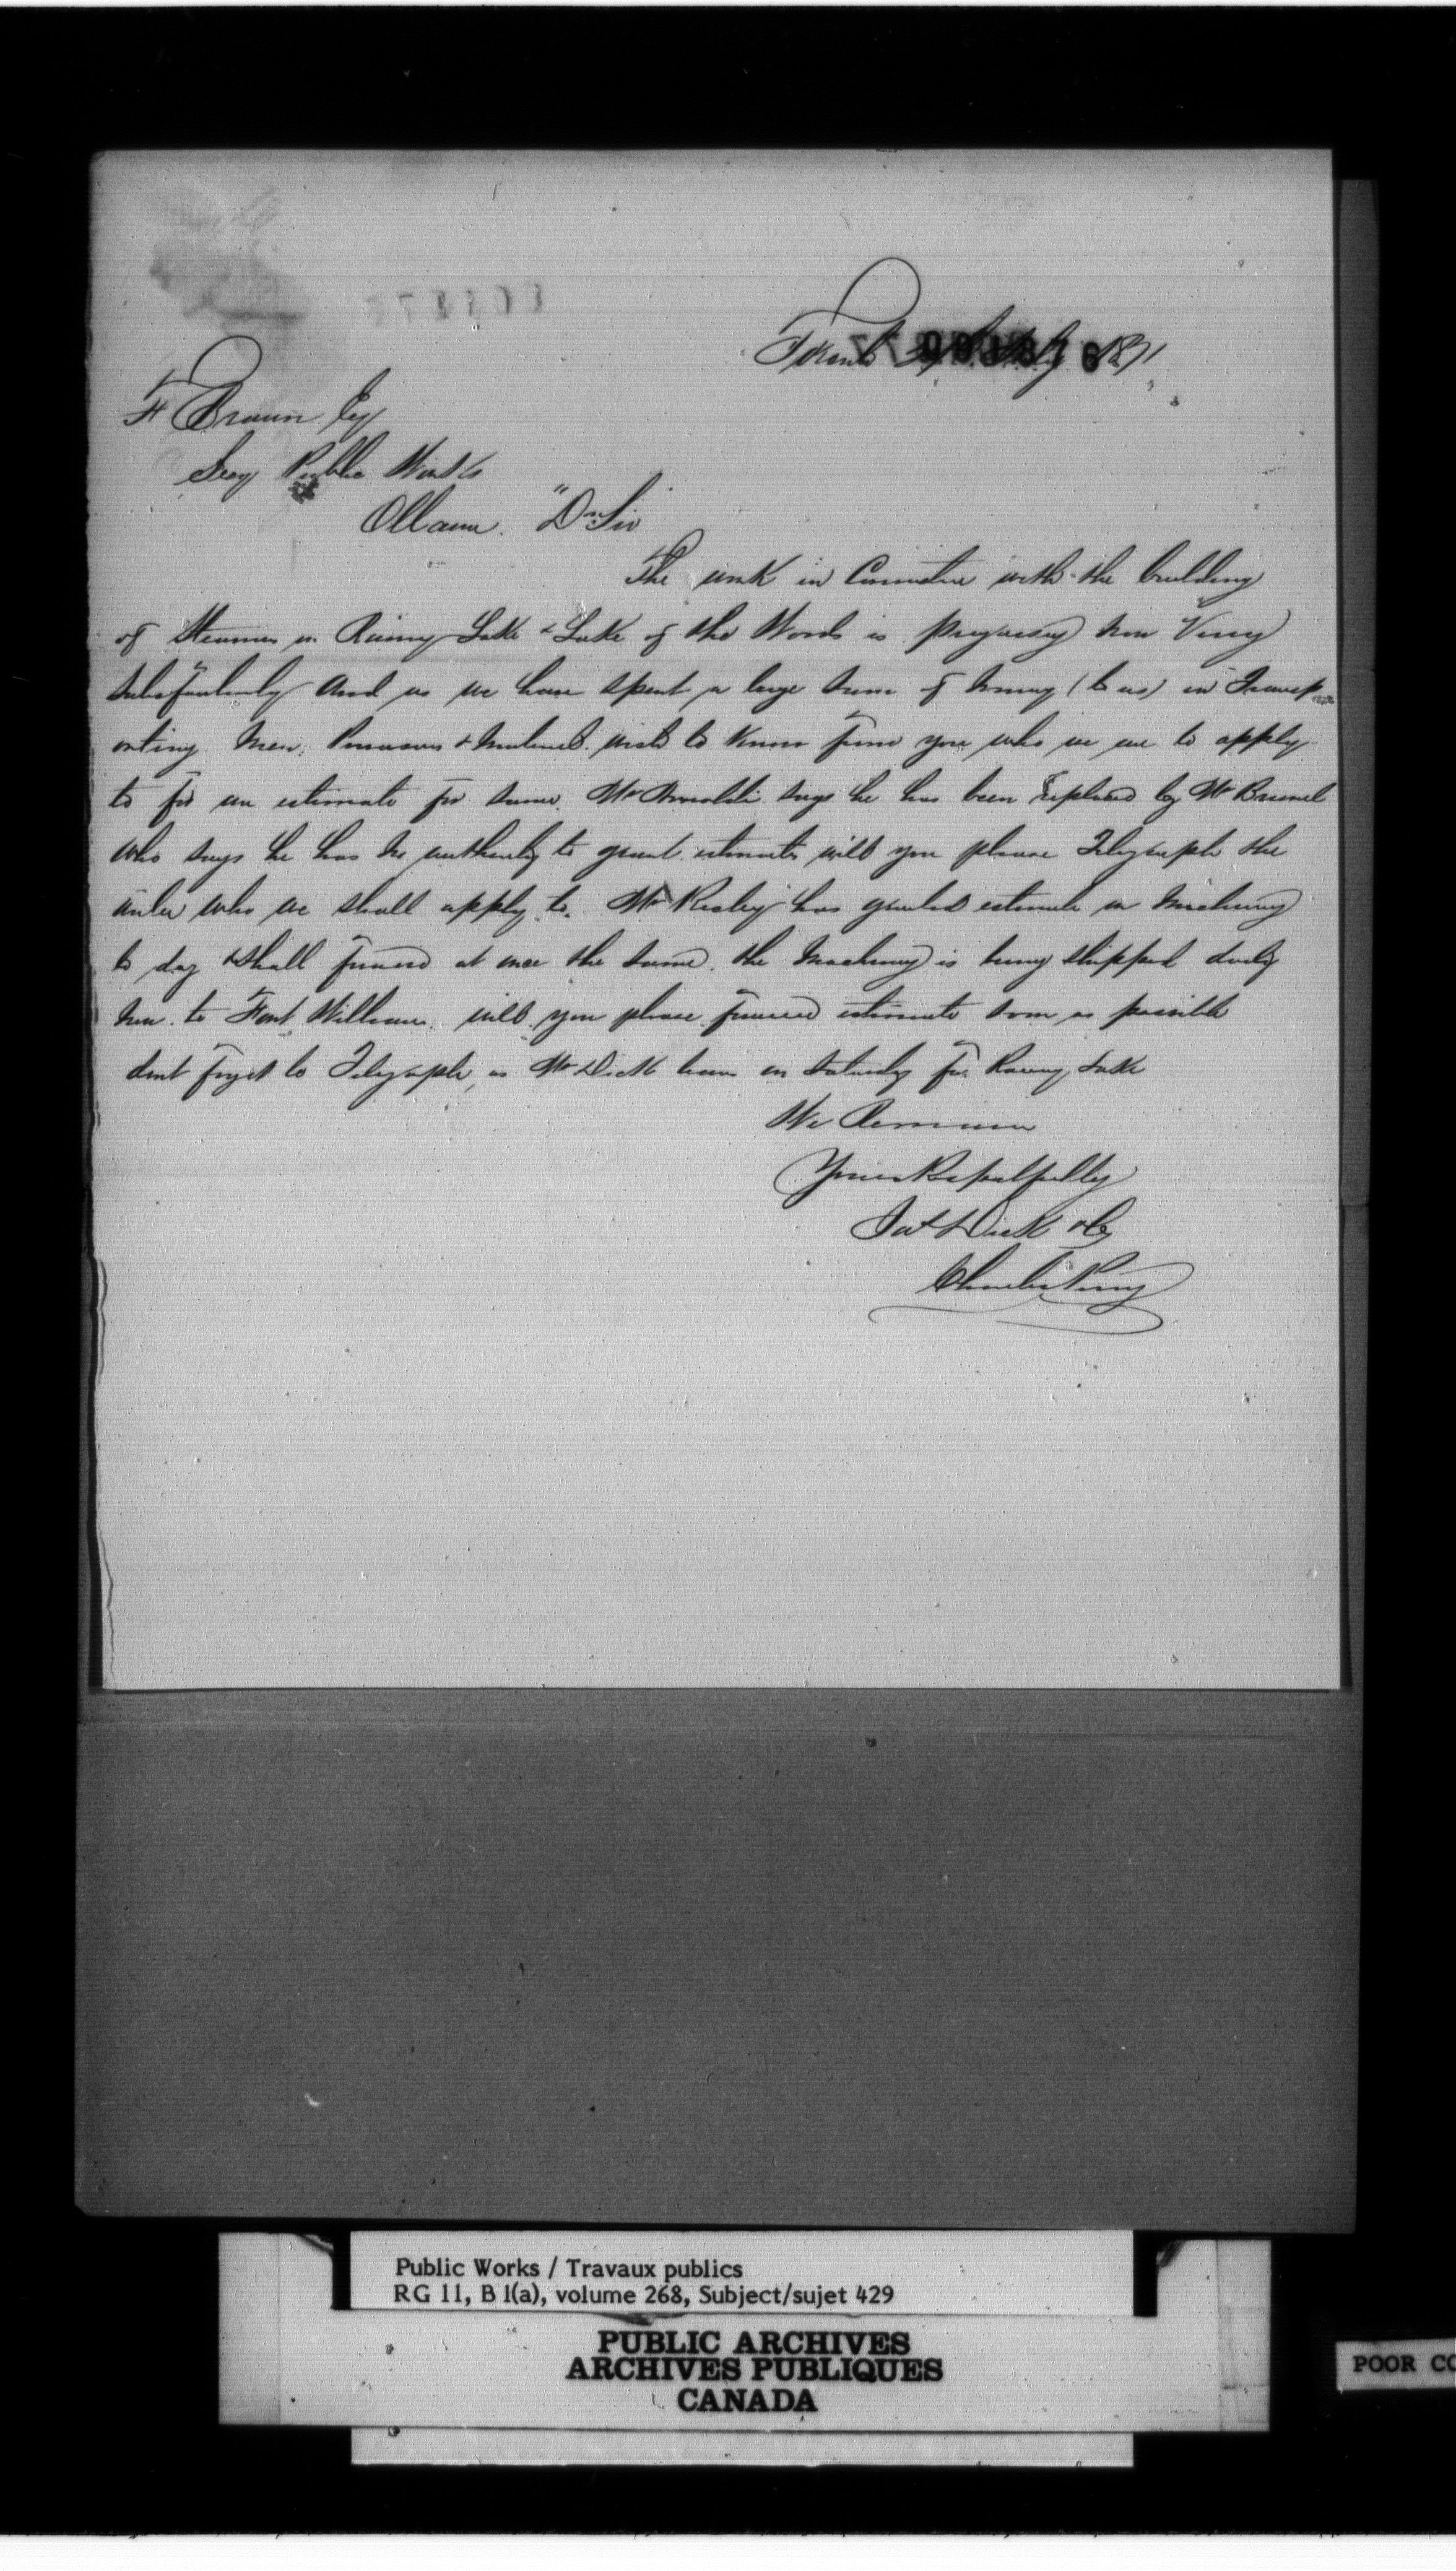 Toronto 1871
F Braun Esq
Secy Public Works
Ottawa. "Dr Sir
The work in Connection with the building
of Steamers on Rainy Lake & Lake of the Woods is progressing now Very
Satisfactorily and as we have spent a large sum of money (to us) in Transp
orting Men, Provisions & Material wish to know from you who we are to apply
to for an estimate for same. Mr Arnoldi says he has been replaced by Mr Brunel
who says he has no authority to grant estimates will you please Telegraph the
under who we shall apply to. Mr Risley has granted estimate on Machinery
to day & shall forward at once the same. the Machinery is being shipped daily
now to Fort William. will you please forward estimate soon as possible
dont forget to Telegraph, as Mr Dick leaves on Saturday for Rainy Lake
We Remain
Yours Respectfully
Jas Dick & Co
Charles Perry
Public Works / Travaux publics
RG 11, B 1(a), volume 268, Subject/sujet 429
PUBLIC ARCHIVES
ARCHIVES PUBLIQUES
CANADA
POOR CO